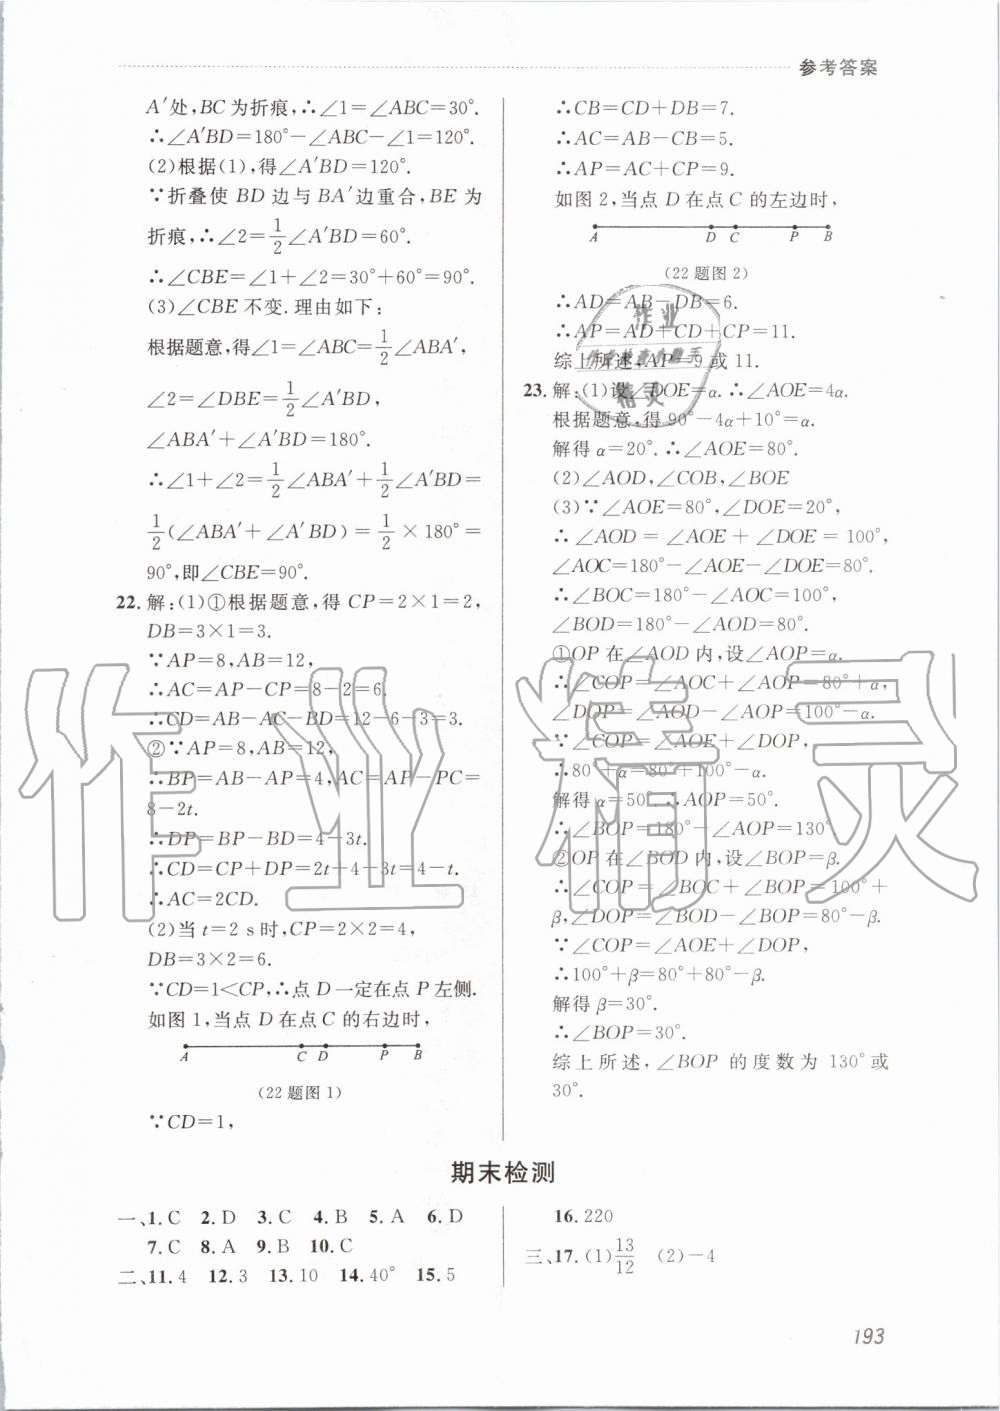 参考答案
A′处,BC为折痕,∴∠1=∠ABC=30°.
∴∠A′BD=180°-∠ABC-∠1=120°.
(2)根据(1),得∠A′BD=120°.
∵折叠使 BD 边与 BA′边重合,BE 为
折痕,∴∠2=1/2∠A′BD=60°.
∴∠CBE=∠1+∠2=30°+60°=90°.
(3)∠CBE 不变.理由如下:
根据题意,得∠1=∠ABC=1/2∠ABA′,
∠2=∠DBE=1/2∠A′BD,
∠ABA′+∠A′BD=180°.
∴∠1+∠2=1/2∠ABA′+1/2∠A′BD=
1/2(∠ABA′+∠A′BD)=1/2×180°=
90°,即∠CBE=90°.
22.解:(1)①根据题意,得 CP=2×1=2,
DB=3×1=3.
∵AP=8,AB=12,
∴AC=AP-CP=8-2=6.
∴CD=AB-AC-BD=12-6-3=3.
②∵AP=8,AB=12,
∴BP=AB-AP=4,AC=AP-PC=
8-2t.
∴DP=BP-BD=4-3t.
∴CD=CP+DP=2t+4-3t=4-t.
∴AC=2CD.
(2)当 t=2 s时,CP=2×2=4,
DB=3×2=6.
∵CD=1<CP,∴点 D 一定在点 P 左侧.
如图1,当点 D 在点 C 的右边时,
A C D P B
(22题图1)
∵CD=1,
∴CB=CD+DB=7.
∴AC=AB-CB=5.
∴AP=AC+CP=9.
如图2,当点 D 在点 C 的左边时,
A D C P B
(22题图2)
∴AD=AB-DB=6.
∴AP=AD+CD+CP=11.
综上所述,AP=9或11.
23.解:(1)设∠DOE=α.∴∠AOE=4α.
根据题意,得90°-4α+10°=α.
解得α=20°.∴∠AOE=80°.
(2)∠AOD,∠COB,∠BOE
(3)∵∠AOE=80°,∠DOE=20°,
∴∠AOD=∠AOE+∠DOE=100°,
∠AOC=180°-∠AOE-∠DOE=80°.
∴∠BOC=180°-∠AOC=100°,
∠BOD=180°-∠AOD=80°.
①OP 在∠AOD 内,设∠AOP=α.
∴∠COP=∠AOC+∠AOP=80°+α,
∠DOP=∠AOD-∠AOP=100°-α.
∵∠COP=∠AOE+∠DOP,
∴80°+α=80°+100°-α.
解得α=50°.∴AOP=50°.
∴∠BOP=180°-∠AOP=130°.
②OP 在∠BOD 内,设∠BOP=β.
∴∠COP=∠BOC+∠BOP=100°+
β,∠DOP=∠BOD-∠BOP=80°-β.
∵∠COP=∠AOE+∠DOP,
∴100°+β=80°+80°-β.
解得β=30°.
∴∠BOP=30°.
综上所述,∠BOP 的度数为130°或
30°.
期末检测
一、1.C 2.D 3.C 4.B 5.A 6.D
7.C 8.A 9.B 10.C
二、11.4 12.3 13.10 14.40° 15.5
16.220
三、17.(1)13/12 (2)-4
193
作业精灵
作业
精灵